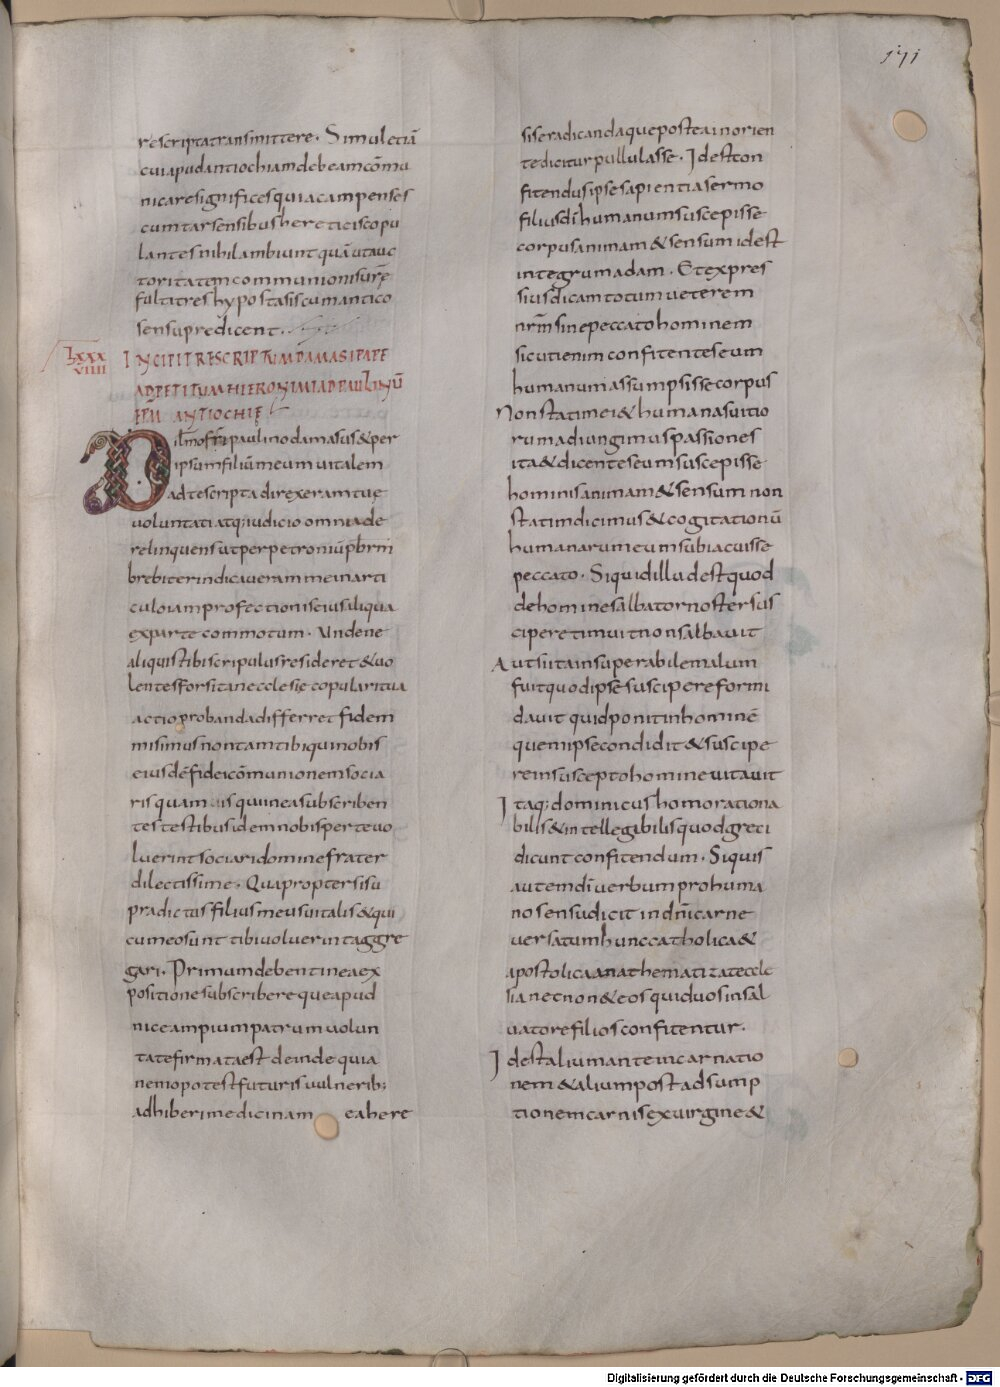 171
rescriptatransmittere. Simuletiā
cuiapudantiochiamdebeamcōmu
nicaresignificesquiacampenses
cumtarsensibushereticiscopu
lantesnihilambiuntquāutauc
toritatemcommunionisurę
fultitreshypostasiscumantico
sensupredicent.
LXXX
VIIII
INCIPIT RESCRIPTUM DAMASI PAPE
AD PETITUM HIERONIMI AD PAULINŪ
EPM ANTIOCHIĘ
Dilmoffripaulinodamasus&per
ipsumfiliūmeumuitalem
adtescriptadirexeramtuę
uoluntatiatq;iudicioomniade
relinquensutperpetroniūpbrm
brebiterindicaverammeinarti
culoiamprofectioniseiusaliqua
expartecommotum. Undene
aliquistibiscripulusresideret&uo
lentesforsitanecclesięcopularitua
actioprobandadifferretfidem
misimusnontamtibiquinobis
eiusdēfideicōmunionemsocia
risquam isquiineasubscriben
testestibusidemnobisperteuo
luerintsociaridominefrater
dilectissime. Quapropter sisu
pradictusfiliusmeusuitalis&qui
cumeosunttibivoluerintaggre
gari. Primumdebentineaex
positionesubscriberequeapud
niceampiumpatrumuolun
tatefirmataest deindequia
nemopotestfuturisuulnerib;
adhiberimedicinam eahere
siseradicandaqueposteainorien
tediciturpullulasse. Idestcon
fitendusipsesapientiasermo
filiusdīhumanumsuscepisse
corpusanimam&sensumidest
integrumadam. Etexpres
siusdicamtotumueterem
nrmsinepeccatohominem
sicutienimconfitenteseum
humanumassumpsissecorpus
Nonstatimei&humanasuitio
rumadiungimuspassiones
ita&dicenteseumsuscepisse
hominisanimam&sensumnon
statimdicimus&cogitationū
humanarumeumsubiacuisse
peccato. Siquidilludestquod
dehominesalbatornostersus
cipere timuitnonsalbauit
Autsiitainsuperabilemalum
fuitquodipsesuscipereformi
dauitquidponitinhominē
quemipsecondidit&suscipe
reinsusceptohomineuitauit
Itaq;dominicushomorationa
bilis&intellegibilisquodgreci
dicuntconfitendum. Siquis
autemdīverbumprohuma
nosensudicitindnicarne
uersatumhunccatholica&
apostolicaanathematizatecclę
sianecnon&eosquiduosinsal
uatorefiliosconfitentur.
Idestaliumanteincarnatio
nem&aliumpostadsump
tionemcarnisexuirgine&
Digitalisierung gefördert durch die Deutsche Forschungsgemeinschaft - DFG